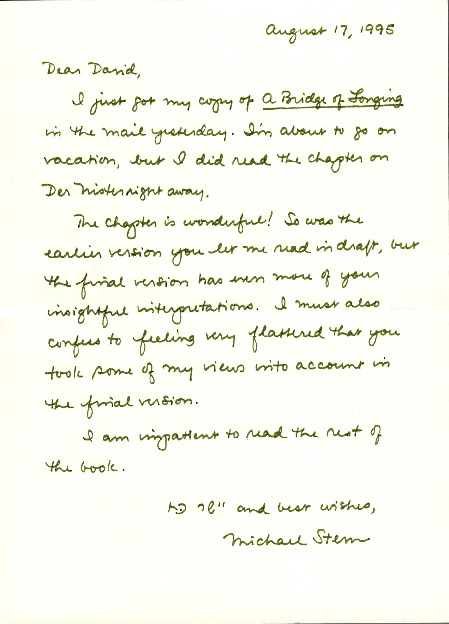 August 17, 1995
Dear David,
I just got my copy of A Bridge of Longing
in the mail yesterday. I'm about to go on
vacation, but I did read the chapter on
Der Nister right away.
The chapter is wonderful! So was the
earlier version you let me read in draft, but
the final version has even more of your
insightful interpretations. I must also
confess to feeling very flattered that you
took some of my views into account in
the final version.
I am impatient to read the rest of
the book.
and best wishes,
Michael Stern